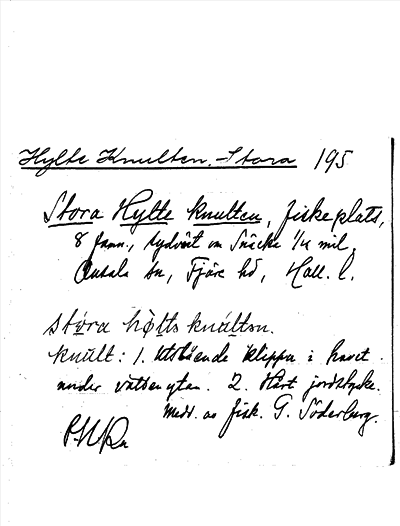 Hylte Knulten, Stora 195
Stora Hylte knulten, fiskeplats,
8 famn., sydväst om Snäcke 1/4 mil.
Onsala sn, Fjäre hd, Hall. l.
stóra hø̀lts knúltsn.
knult: 1. Utstående klippa i havet
under vattenytan. 2. Hårt jordstycke.
Medd. av fisk. G. Söderburg.